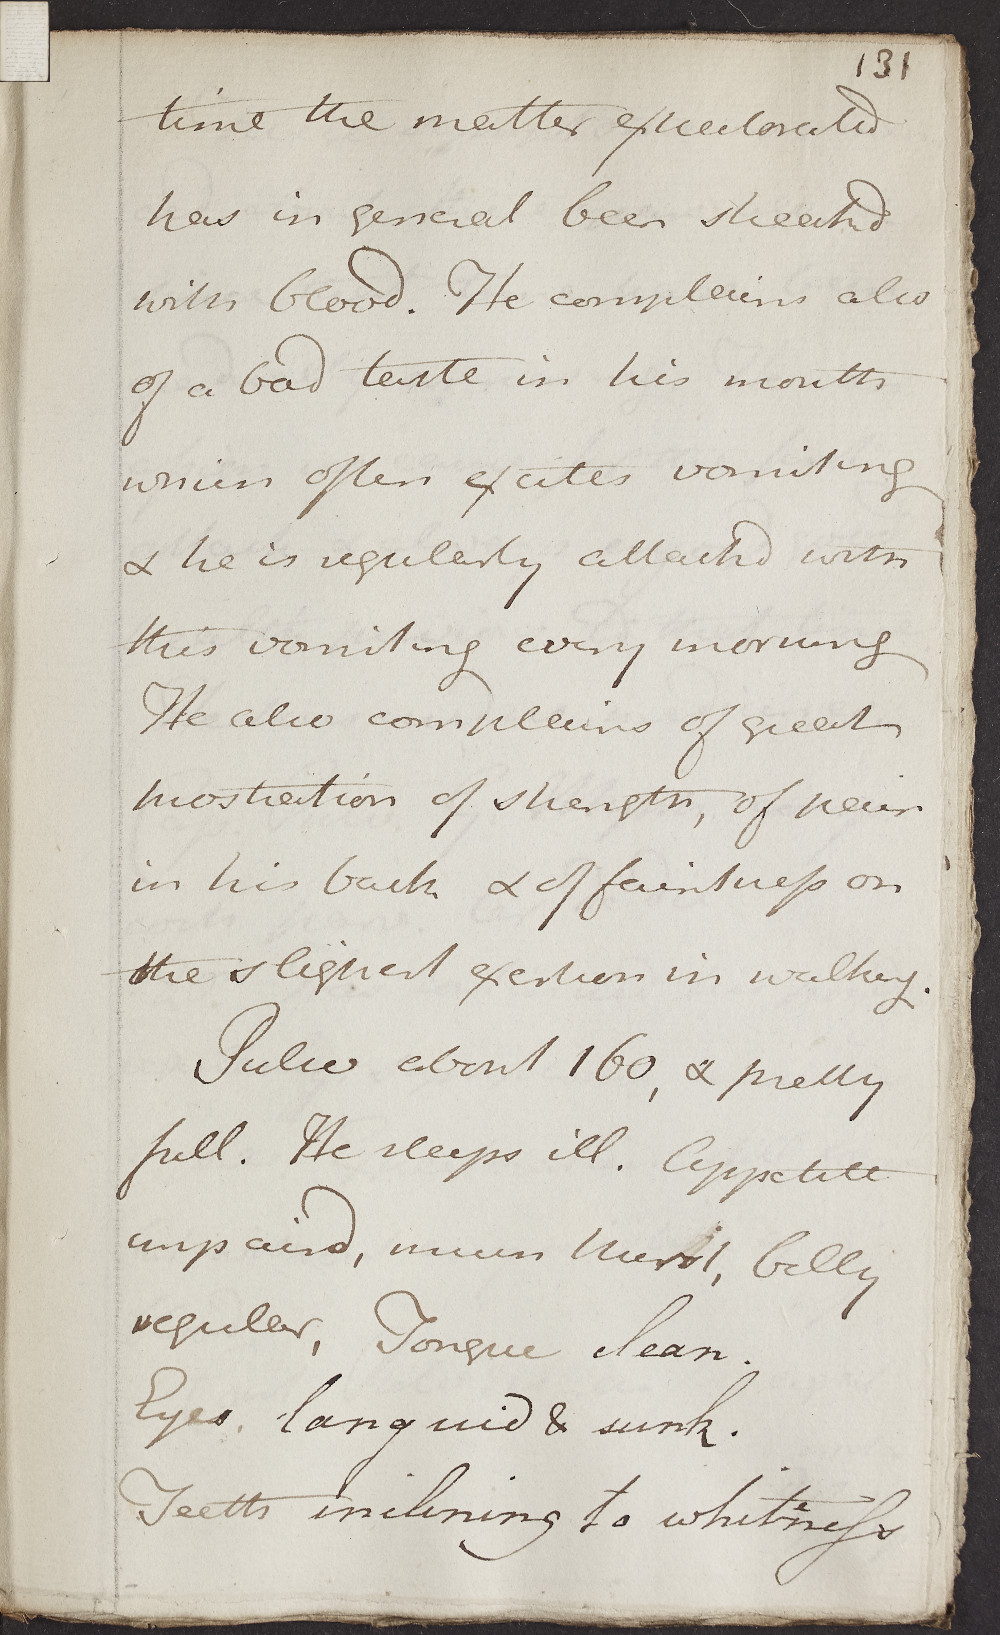 131
time the matter expectorated
has in general been streaked
with blood. He complains also
of a bad taste in his mouth
which often excites vomiting
& he is regularly attacked with
this vomiting every morning
He also complains of great
prostration of strength, of pain
in his back & of faintness on
the slightest exertion in walking.
Pulse about 160, & pretty
full. He sleeps ill. Appetite
impaird, much thirst, belly
regular, Tongue clean.
Eyes languid & sunk.
Teeth inclining to whiteness